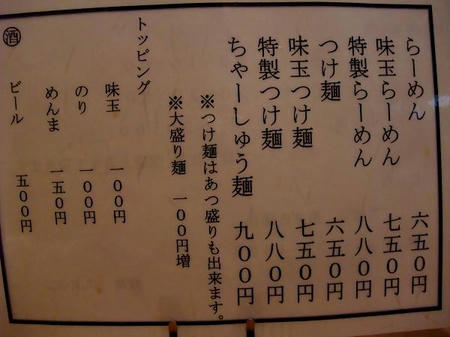 らーめん 六五〇円
味玉らーめん 七五〇円
特製らーめん 八八〇円
つけ麺 六五〇円
味玉つけ麺 七五〇円
特製つけ麺 八八〇円
ちゃーしゅう麺 九〇〇円
※つけ麺はあつ盛りも出来ます。
※大盛り麺 一〇〇円増
トッピング
味玉 一〇〇円
のり 一〇〇円
めんま 一五〇円
ビール 五〇〇円
酒